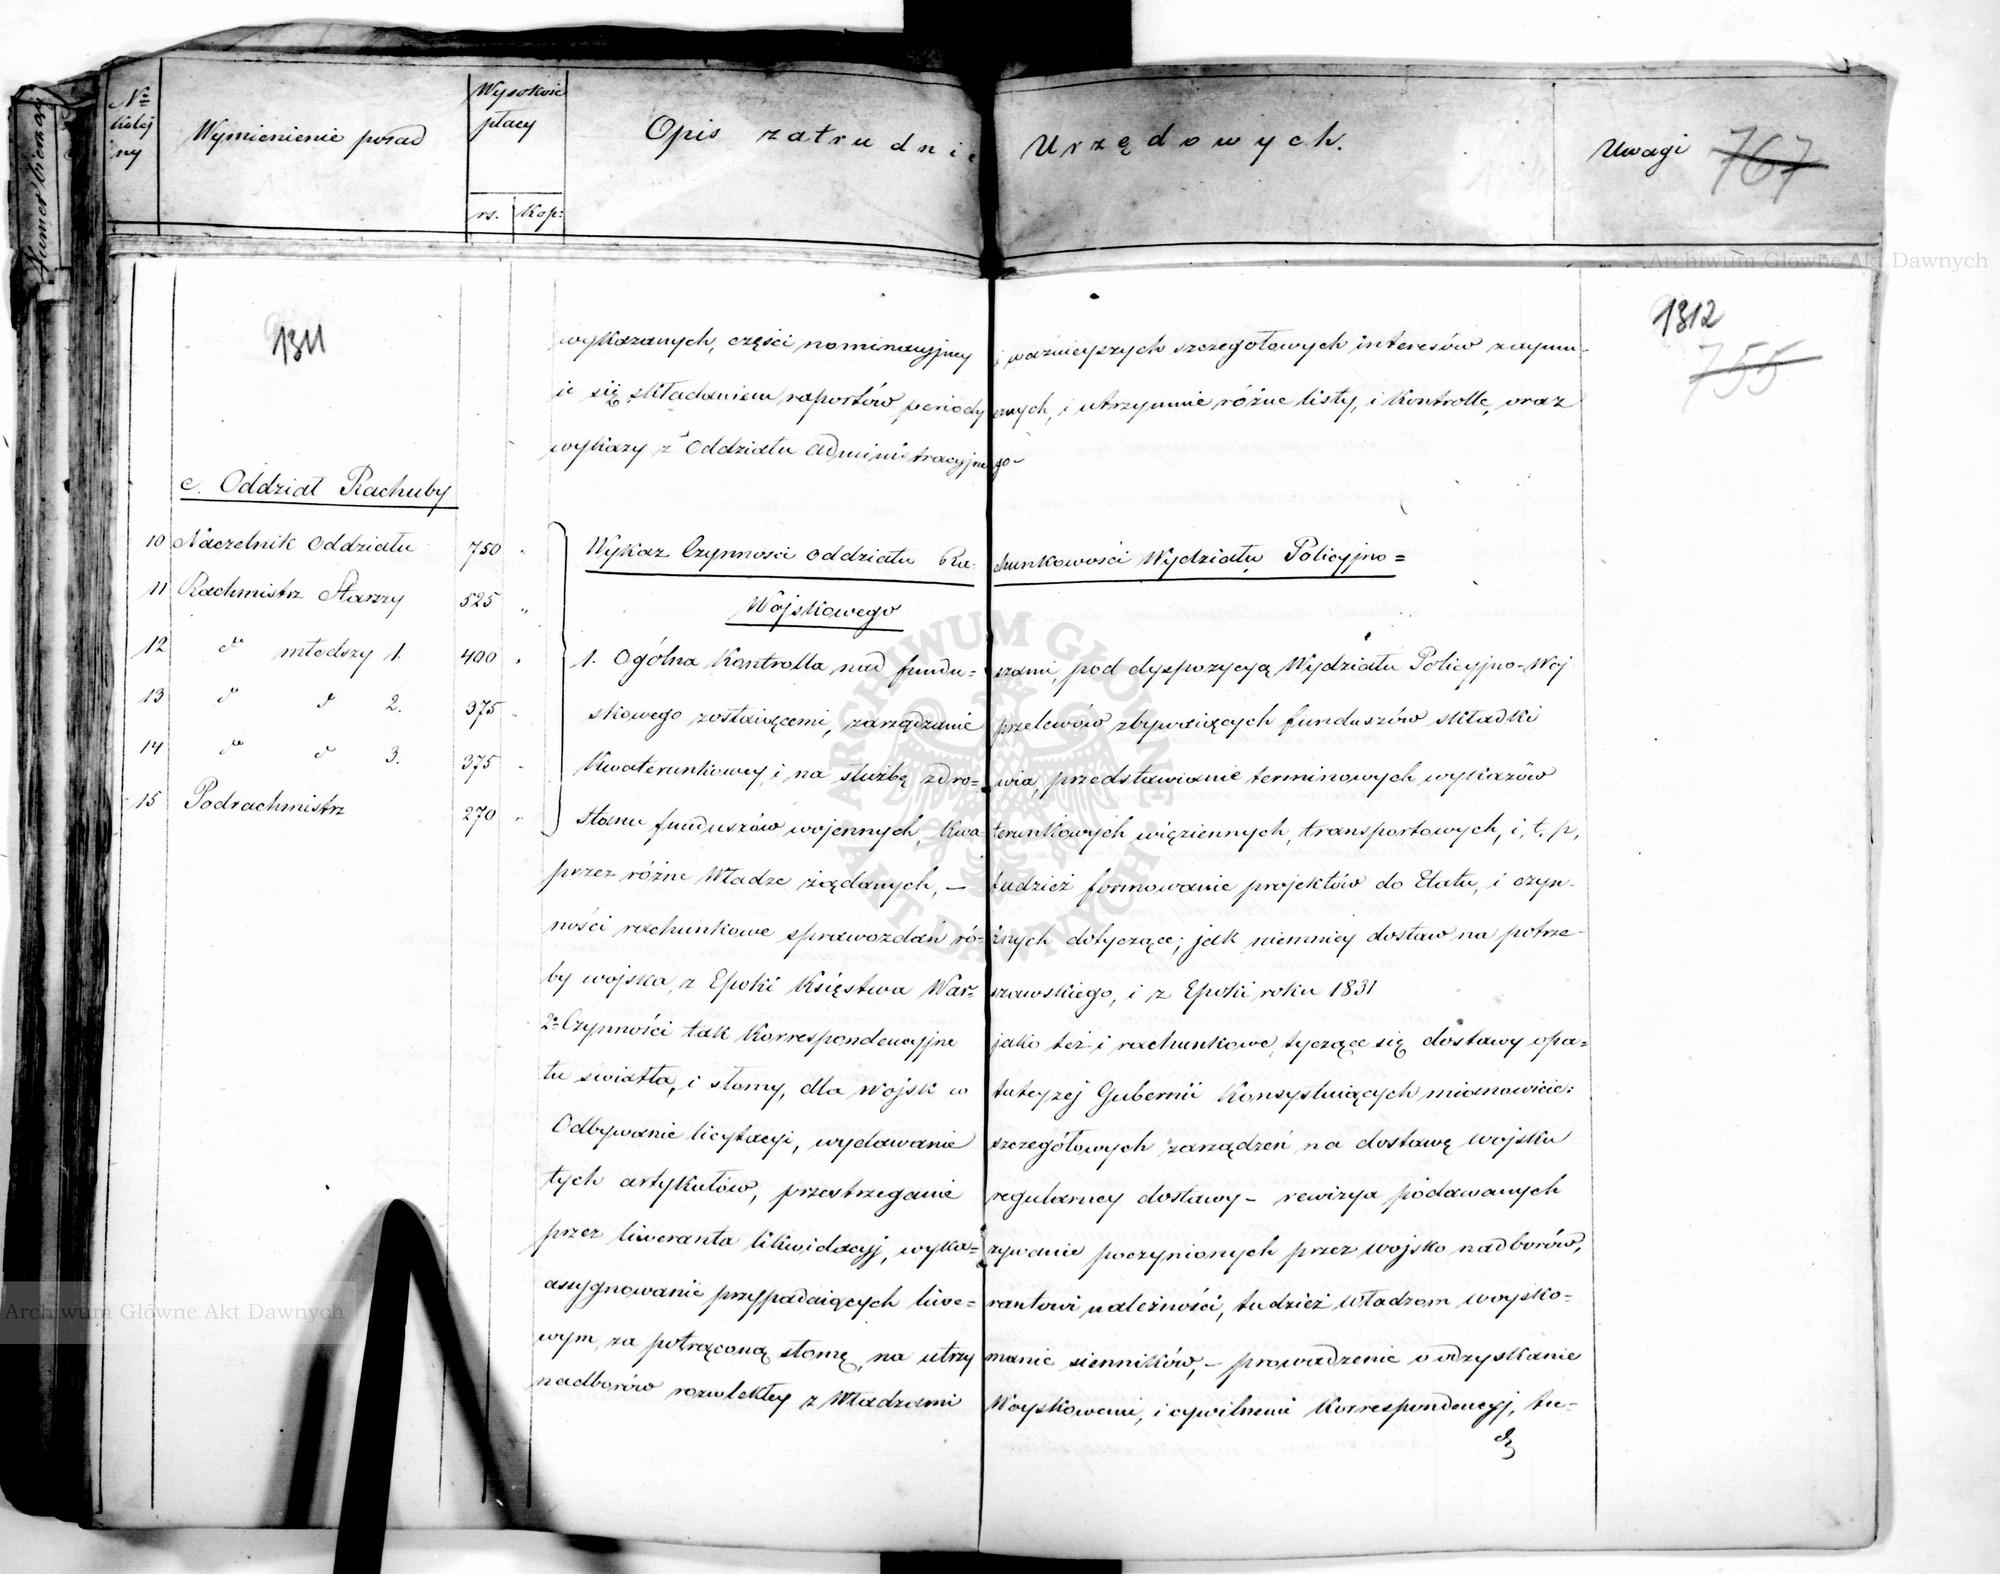 Nº kolejny
Wymienienie posad
Wysokość płacy
rs. Kop:
Opis zatrudnień Urzędowych.
Uwagi
767
Archiwum Główne Akt Dawnych
1311
1312
755
wykazanych, części nominacyjney i ważnieyszych szczegołowych interesów zaymu-
ie się składaniem raportów, periodycznych, i utrzymuie różne listy, i kontrolle, oraz
wykazy z Oddziału Administracyjnego-
c. Oddział Rachuby
10 Naczelnik Oddziału 750 "
11 Rachmistrz Starszy 525 "
12 do młodszy 1. 400 "
13 do do 2. 375 "
14 do do 3. 375 "
15 Podrachmistrz 270 "
Wykaz Czynności Oddziału Rachunkowości Wydziału Policyjno=
Wojskowego
1. Ogólna Kontrolla nad fundu=szami, pod dyspozycyą Wydziału Policyjno-Woj
skowego zostaiącemi, zarządzanie przelewów zbywaiących funduszów składki
Kwaterunkowey, i na służbę zdro=wia, przedstawianie terminowych wykazów
Stanu funduszów wojennych, kwaterunkowych więziennych, transportowych, i, t, p,
przez różne Władze żądanych, — tudzież formowanie projektów do Etatu, i czyn-
ności rachunkowe sprawozdań ró=żnych dotyczące; jak niemniey dostaw na potrze-
by wojska, z Epoki Księstwa War=szawskiego, i z Epoki roku 1831
2o Czynności tak Korrespondencyjne jako też i rachunkowe, tyczące się dostawy opa=
łu światła, i słomy, dla Wojsk w tuteyszéj Gubernii Konsystuiących mianowicie:
Odbywanie licytacyi, wydawanie szczegółowych zarządzeń na dostawę wojsku
tych artykułów, przestrzeganie regularney dostawy – rewizya podawanych
przez liweranta likwidacyj, wyka=zywanie poczynionych przez wojsko nadborów,
assygnowanie przypadaiących liwe=rantowi należności, tudzież Władzom woysko-
wym, za potrąconą słomę, na utrzymanie sienników, — prowadzenie o odzyskanie
nadborów rozwlekłey z Władzami Woyskowemi, i cywilnemi Korrespondencyj, tu-
dz
Archiwum Główne Akt Dawnych
ARCHIWUM GŁÓWNE AKT DAWNYCH